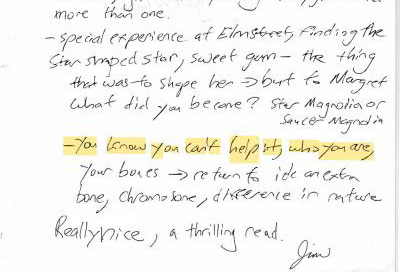 more than one.
- special experience at Elmstreet, finding the
star shaped star, sweet gum - the thing
that was to shape her → but to Margret
what did you become? Star Magnolia or
Saucer Magnolia
- You know you can't help it, who you are,
your bones → return to idc an extra
bone, chromosone, difference in nature
Really nice, a thrilling read.
Jim